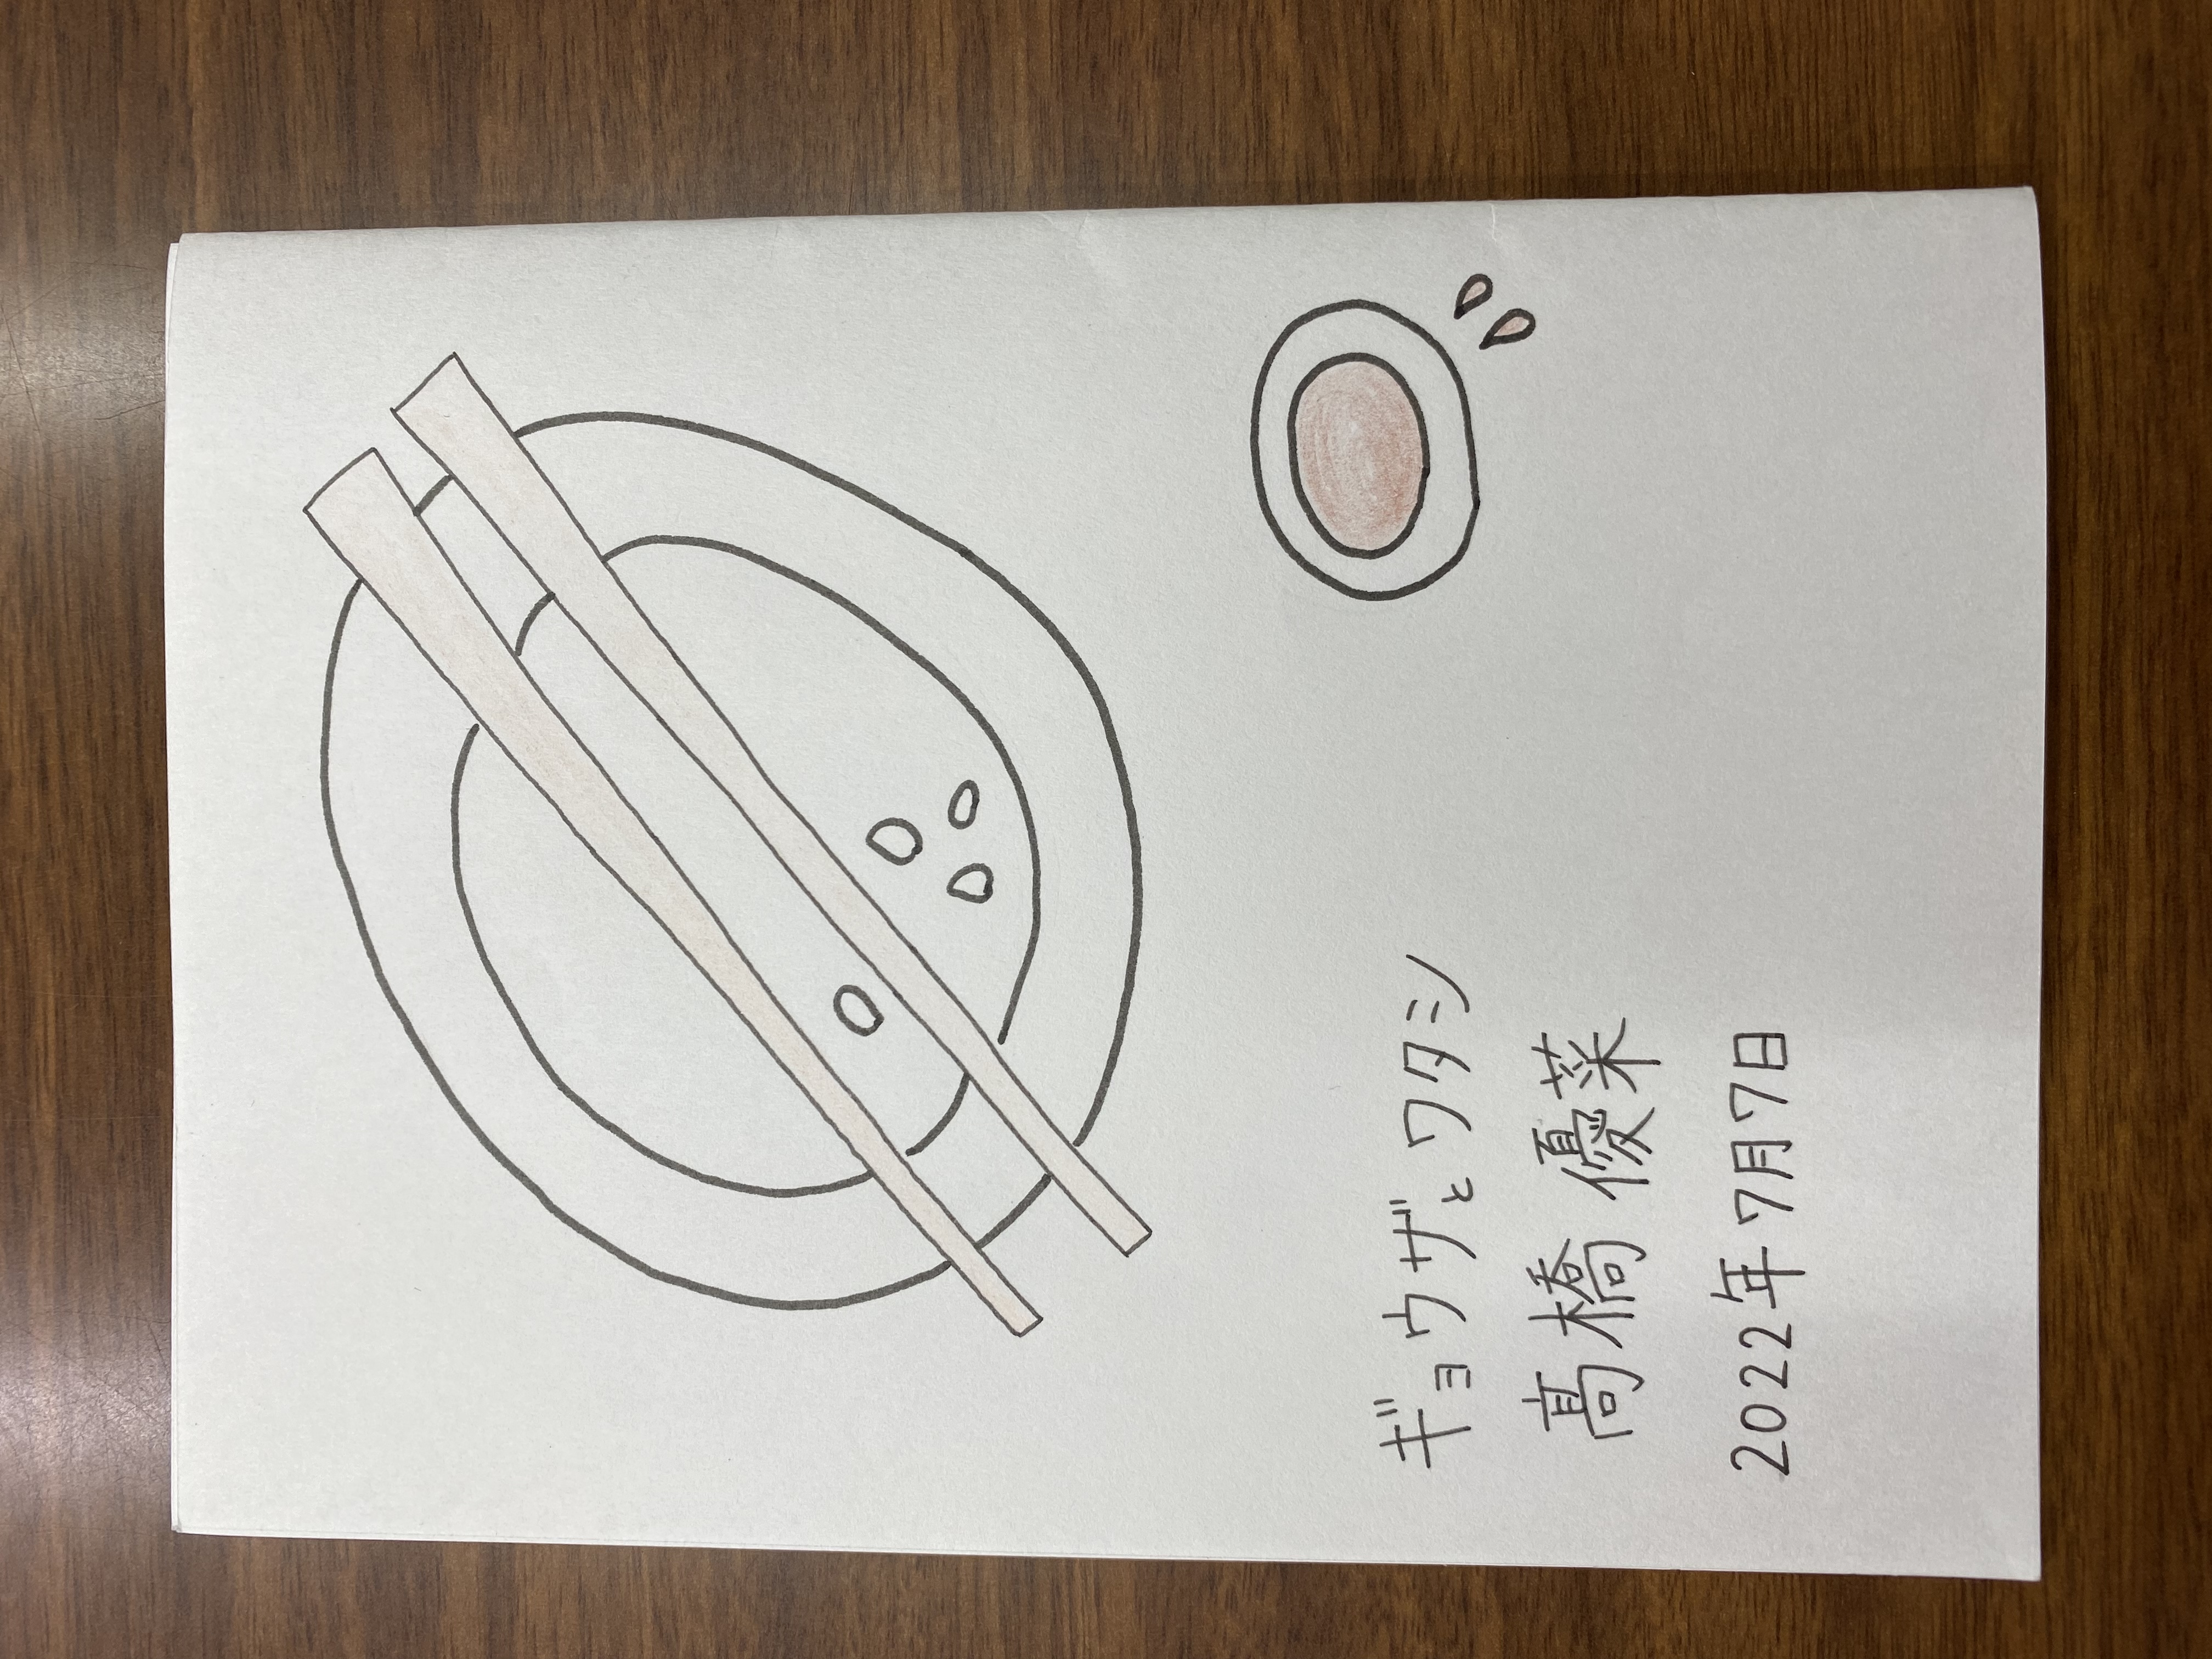 ギョウザとワタシ
髙橋 優菜
2022年7月7日